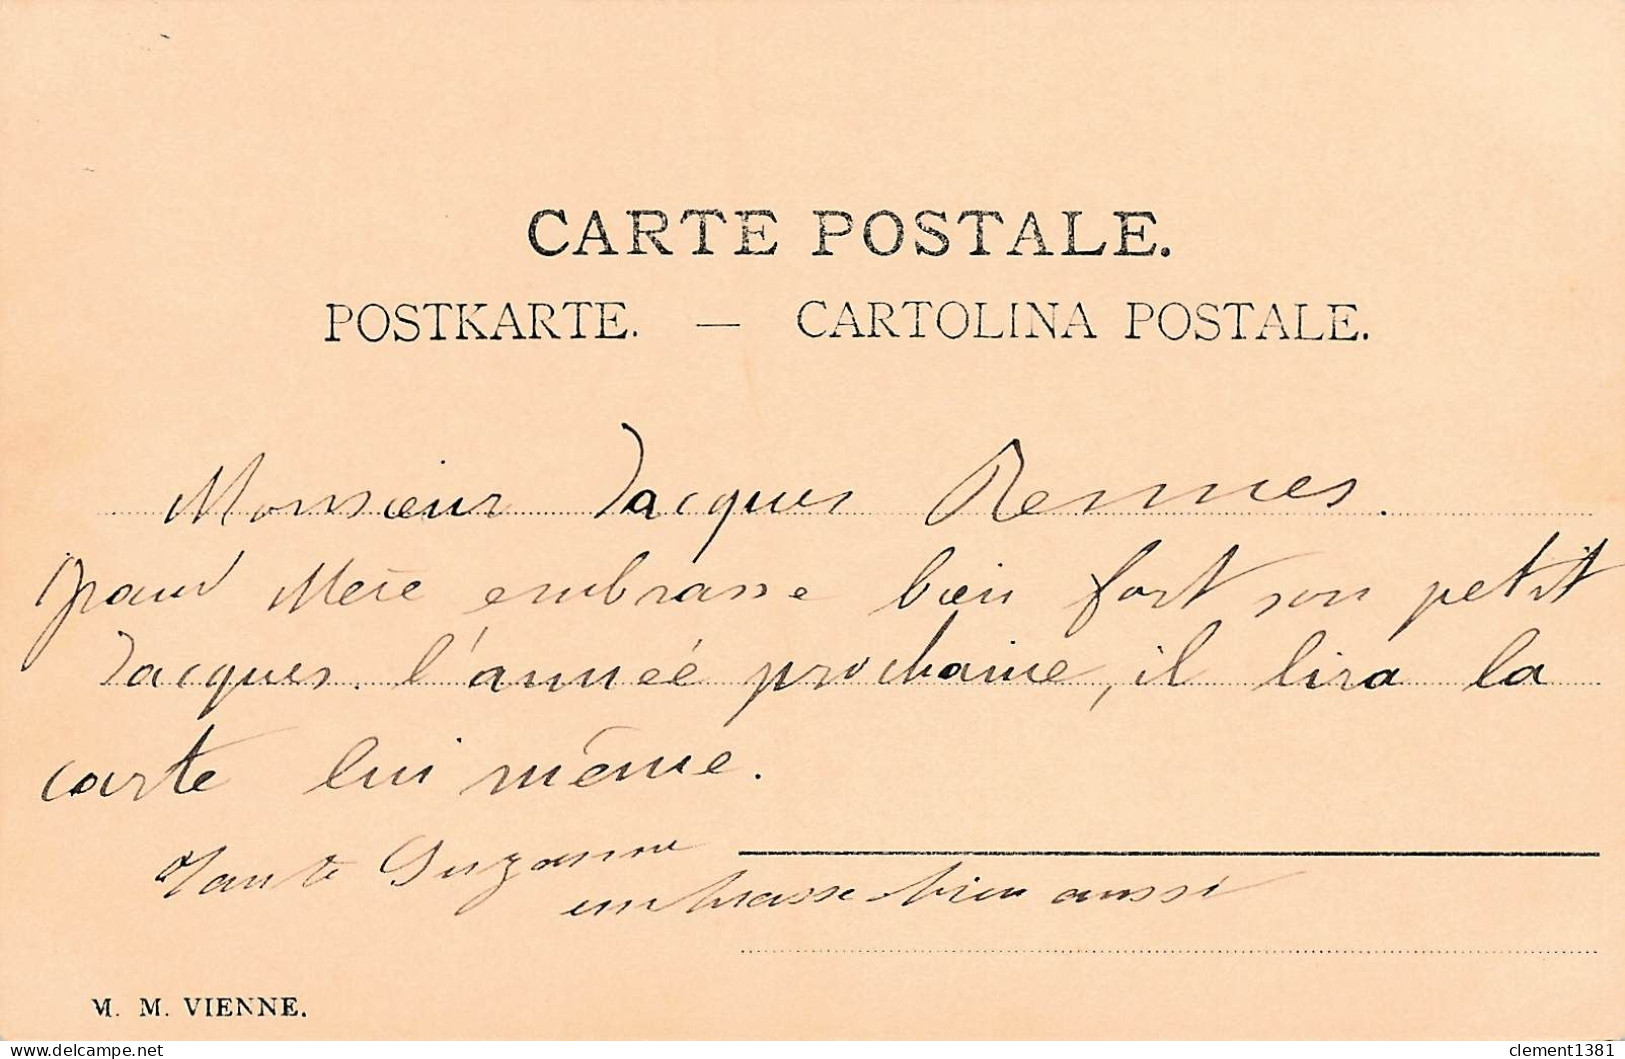 CARTE POSTALE.
POSTKARTE. — CARTOLINA POSTALE.
Monsieur Jacques Rennes.
grand Mère embrasse bien fort son petit
Jacques. l'année prochaine, il lira la
carte lui même.
Tante Suzanne
embrasse bien aussi
M. M. VIENNE.
delcampe.net
clement1381